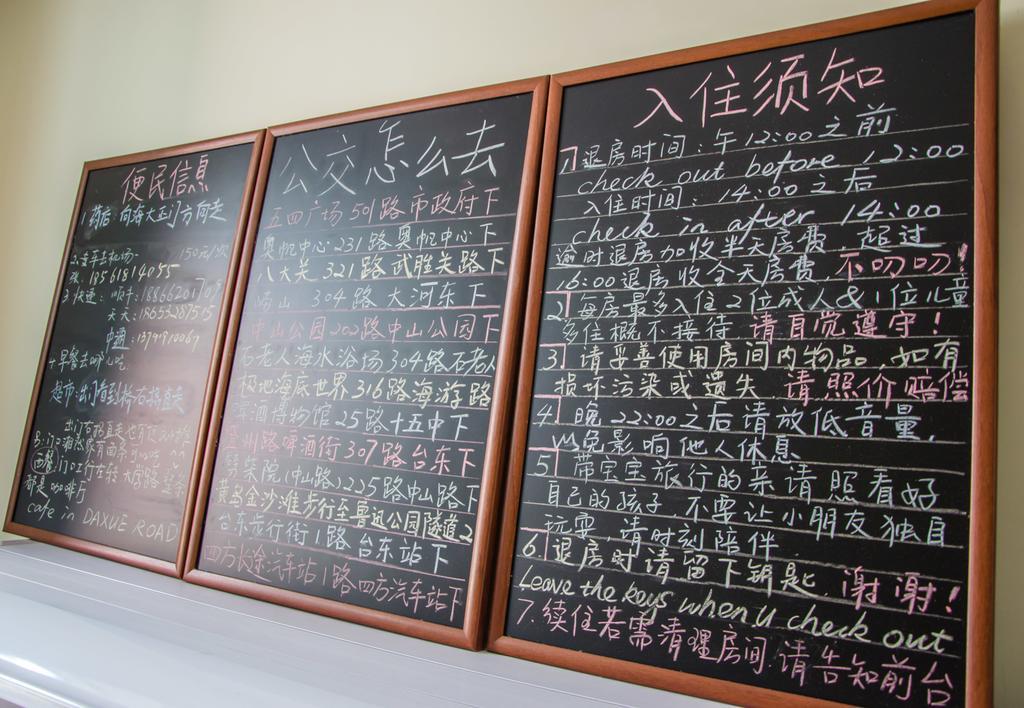 便民信息
1 药店 向海大正门方向走
2. 去机场 150元/次
张. 18561814055
3 快递: 顺丰:
天天: 18653287515
中通: 13791910067
4 早餐去哪儿吃
超市:出门看到桥右拐直走
西餐, 门口右转 大学路 整条
都是咖啡厅
cafe in DAXUE ROAD
公交怎么去
五四广场 501路 市政府下
奥帆中心 231路 奥帆中心下
八大关 321路 武胜关路下
崂山 304路 大河东下
中山公园 202路 中山公园下
石老人海水浴场 304路石老人
极地海底世界 316路海游路
啤酒博物馆 25路十五中下
登州路啤酒街 307路台东下
劈柴院(中山路)225路中山路下
黄岛金沙滩步行至鲁迅公园隧道2
台东步行街1路 台东站下
四方长途汽车站1路四方汽车站下
入住须知
1. 退房时间: 午12:00之前
check out before 12:00
入住时间: 14:00之后
check in after 14:00
逾时退房加收半天房费. 超过
16:00退房收全天房费 不叨叨!
2 每房最多入住2位成人&1位儿童
多住概不接待 请自觉遵守!
3. 请妥善使用房间内物品. 如有
损坏污染或遗失 请照价赔偿
4. 晚22:00之后请放低音量,
以免影响他人休息
5 带宝宝旅行的亲请照看好
自己的孩子 不要让小朋友独自
玩耍. 请时刻陪伴
6 退房时请留下钥匙. 谢谢!
Leave the keys when u check out
7. 续住若需清理房间.请告知前台